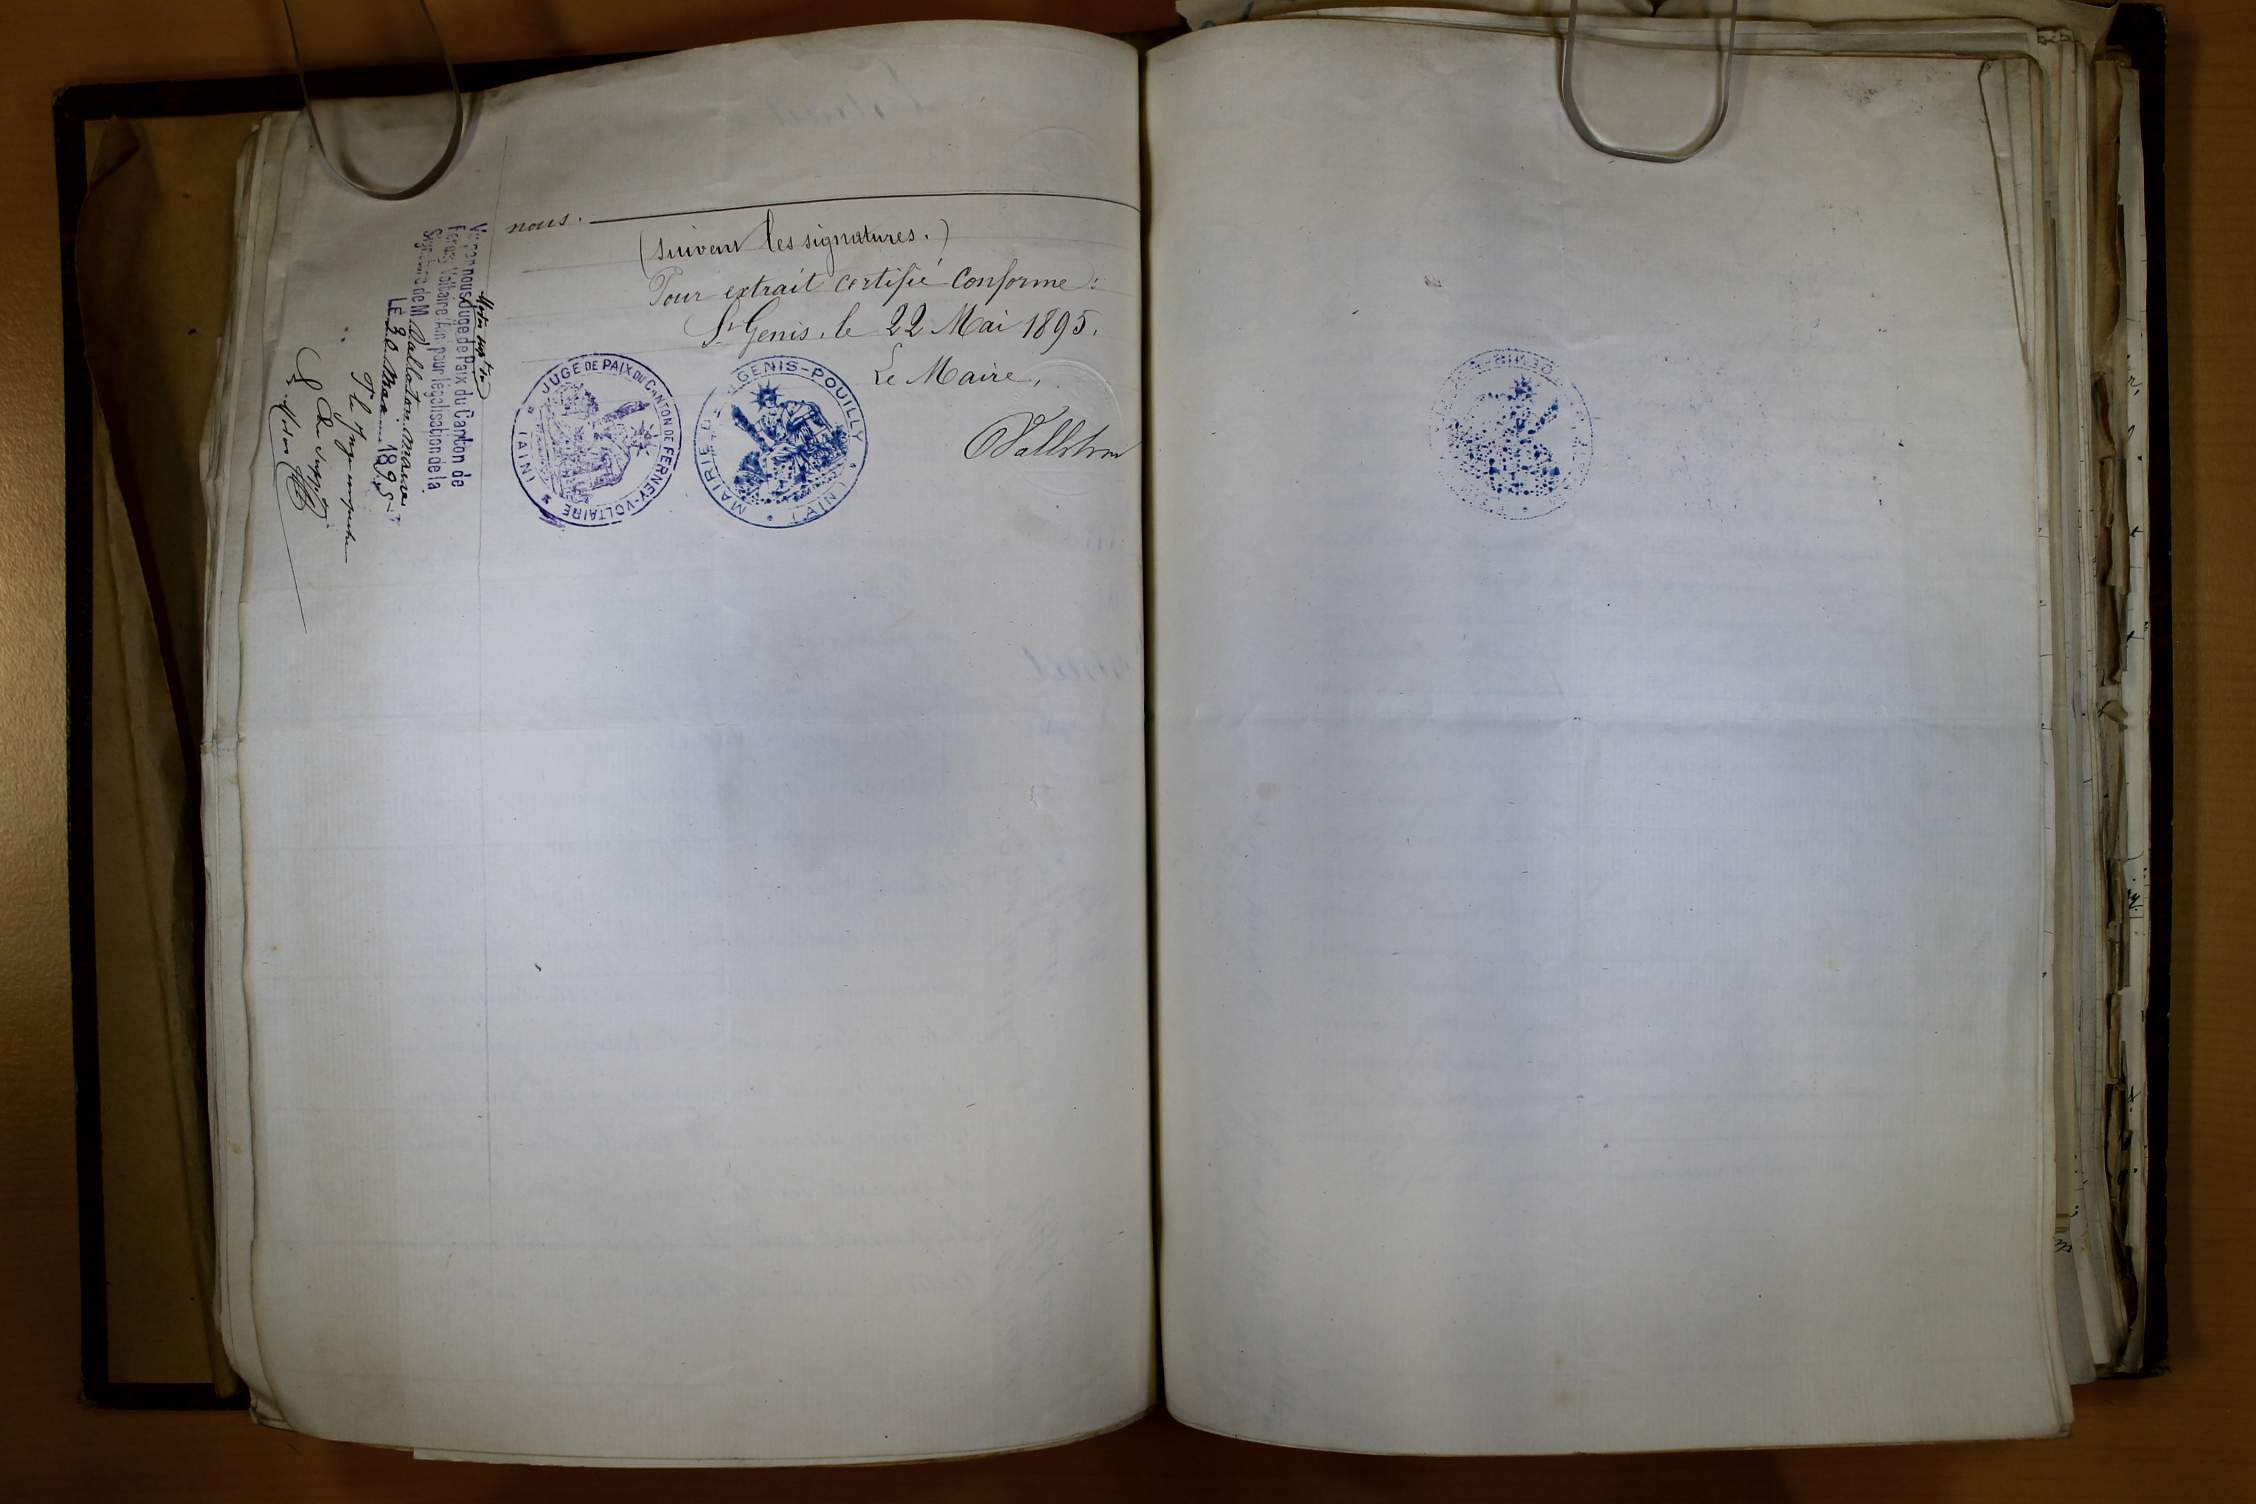 nous.
(suivent les signatures.)
Pour extrait certifié conforme:
St Genis, le 22 Mai 1895.
Le Maire,
Vu par nous Juge de Paix du Canton de
Ferney-Voltaire (Ain) pour légalisation de la
Signature de M Valloton Maire
LE 30 Mai 1895
JUGE DE PAIX DU CANTON DE FERNEY-VOLTAIRE
(AIN)
MAIRIE DE ST GENIS-POUILLY
(AIN)